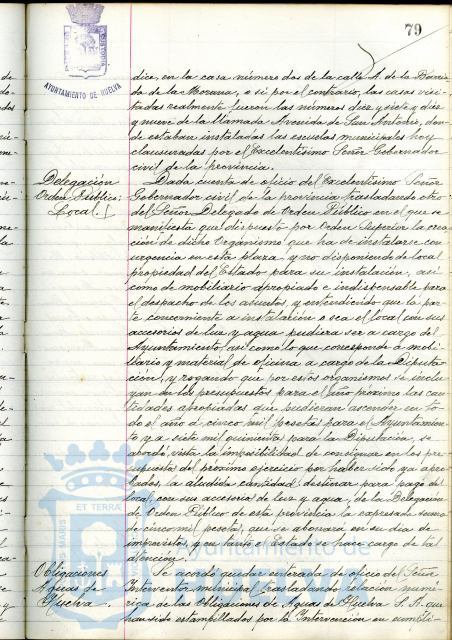 79
AYUNTAMIENTO DE HUELVA
dice, en la casa número dos de la calle A. de la Barria-
da de la Morana, o si por el contrario, las casas visi-
tadas realmente fueron las números diez y siete y diez
y nueve de la llamada Avenida de San Antonio, don-
de estaban instaladas las escuelas municipales hoy
clausuradas por el Excelentísimo Señor Gobernador
civil de la provincia.
Delegación
Orden Público
Local.
Dada cuenta de oficio del Excelentísimo Señor
Gobernador civil de la provincia trasladando otro
del Señor Delegado de Orden Público en el que se
manifiesta que dispuesto por Orden Superior la crea-
ción de dicho Organismo que ha de instalarse con
urgencia en esta plaza, y no disponiendo de local
propiedad del Estado para su instalación, así
como de mobiliario apropiado e indispensable para
el despacho de los asuntos, y entendiendo que la par-
te concerniente a instalación o sea el local con sus
accesorios de luz y agua pudiera ser a cargo del
Ayuntamiento, así como lo que corresponde a mobi-
liario y material de oficina a cargo de la Diputa-
ción, y rogando que por estos organismos se inclu-
yan en los presupuestos para el año próximo las can-
tidades apropiadas que pudieran ascender en to-
do el año a cinco mil pesetas para el Ayuntamien-
to y a siete mil quinientas para la Diputación, se
acordó, vista la imposibilidad de consignar en los pre-
supuestos del próximo ejercicio por haber sido ya apro-
bados, la aludida cantidad, destinar para pago del
local, con sus accesorios de luz y agua, de la Delegación
de Orden Público de esta provincia la expresada suma
de cinco mil pesetas, que se abonará en su día de
imprevistos, y en tanto el Estado se hace cargo de tal
atención.
Obligaciones
Aguas de
Huelva.
Se acordó quedar enterada de oficio del Señor
Interventor municipal, trasladando relación numé-
rica de las Obligaciones de Aguas de Huelva S. A. que
han sido estampilladas por la Intervención en cumpli-
ET TERRA
Ayuntamiento de